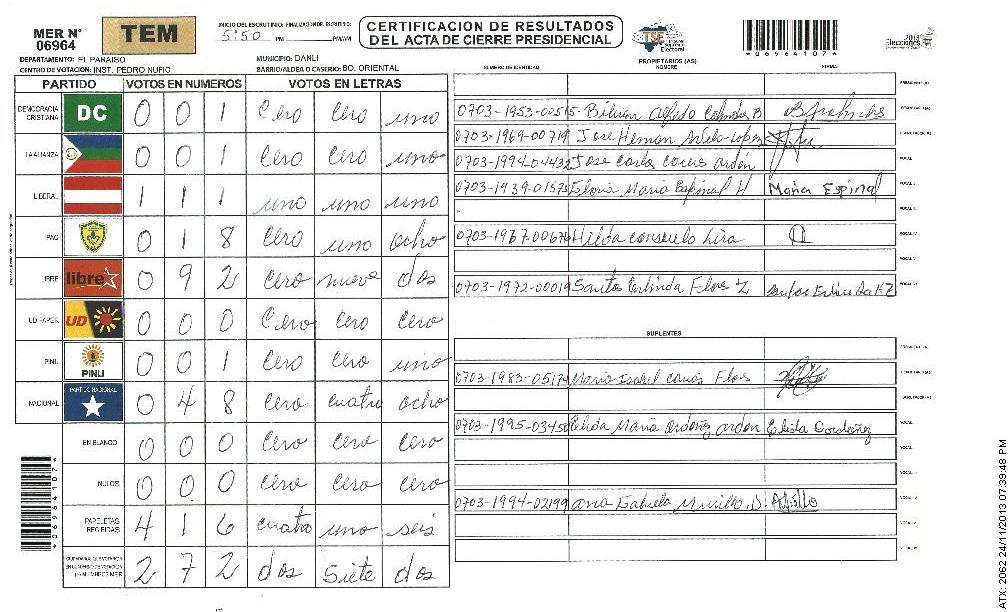 MER N° 06964
TEM
INICIO DEL ESCRUTINIO: FINALIZACION DEL ESCRUTINIO:
5:50 PM PM/AM
CERTIFICACION DE RESULTADOS
DEL ACTA DE CIERRE PRESIDENCIAL
TSE Tribunal Supremo Electoral
*06964107*
2013 Elecciones
DEPARTAMENTO: EL PARAISO
MUNICIPIO: DANLI
CENTRO DE VOTACION: INST. PEDRO NUFIO
BARRIO/ALDEA O CASERIO: BO. ORIENTAL
PARTIDO VOTOS EN NUMEROS VOTOS EN LETRAS
DEMOCRACIA CRISTIANA DC 0 0 1 Cero Cero uno
LA ALIANZA 0 0 1 Cero Cero uno
LIBERAL 1 1 1 uno uno uno
PAC 0 1 8 Cero uno ocho
LIBRE libre 0 9 2 Cero nueve dos
UD FAPER UD 0 0 0 Cero cero cero
PINU PINU 0 0 1 Cero Cero uno
NACIONAL PARTIDO NACIONAL 0 4 8 cero cuatro ocho
EN BLANCO 0 0 0 cero cero cero
NULOS 0 0 0 cero cero cero
PAPELETAS RECIBIDAS 4 1 6 cuatro uno seis
CIUDADANOS QUE VOTARON EN CUADERNO DE VOTACION (+) MIEMBROS MER 2 7 2 dos siete dos
*06964107*
NUMERO DE IDENTIDAD PROPIETARIOS (AS) NOMBRE FIRMA
0703-1953-00515 Alfredo B
0703-1969-00719 Jose Hernan Avila Lopez
0703-1994-04432 Jose Carlos
0703-1939-01575 Gloria Maria Espinal H Maria Espinal
VOCAL I
0703-1967-00676 Hilda consuelo lira
VOCAL IV
VOCAL V
0703-1972-00019 Santos Erlinda Flores Z
SUPLENTES
0703-1983-05174 Maria Isabel Flores
0703-1995-03450 Elida Maria Ordoñez Elida Ordoñez
0703-1994-02199 ana Gabriela Murillo. D
ATX: 2062 24/11/2013 07:39:48 PM